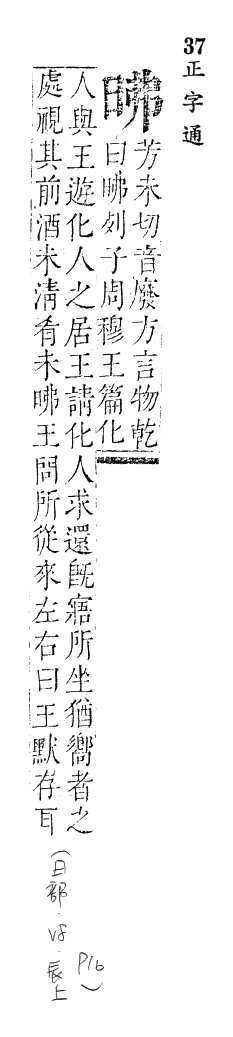 37 正字通
昲
芳未切音廢方言物乾
曰昲列子周穆王篇化
人與王遊化人之居王請化人求還既寤所坐猶嚮者之
處視其前酒未清肴未昲王問所從來左右曰王默存耳
(日部·58·辰上
P16)